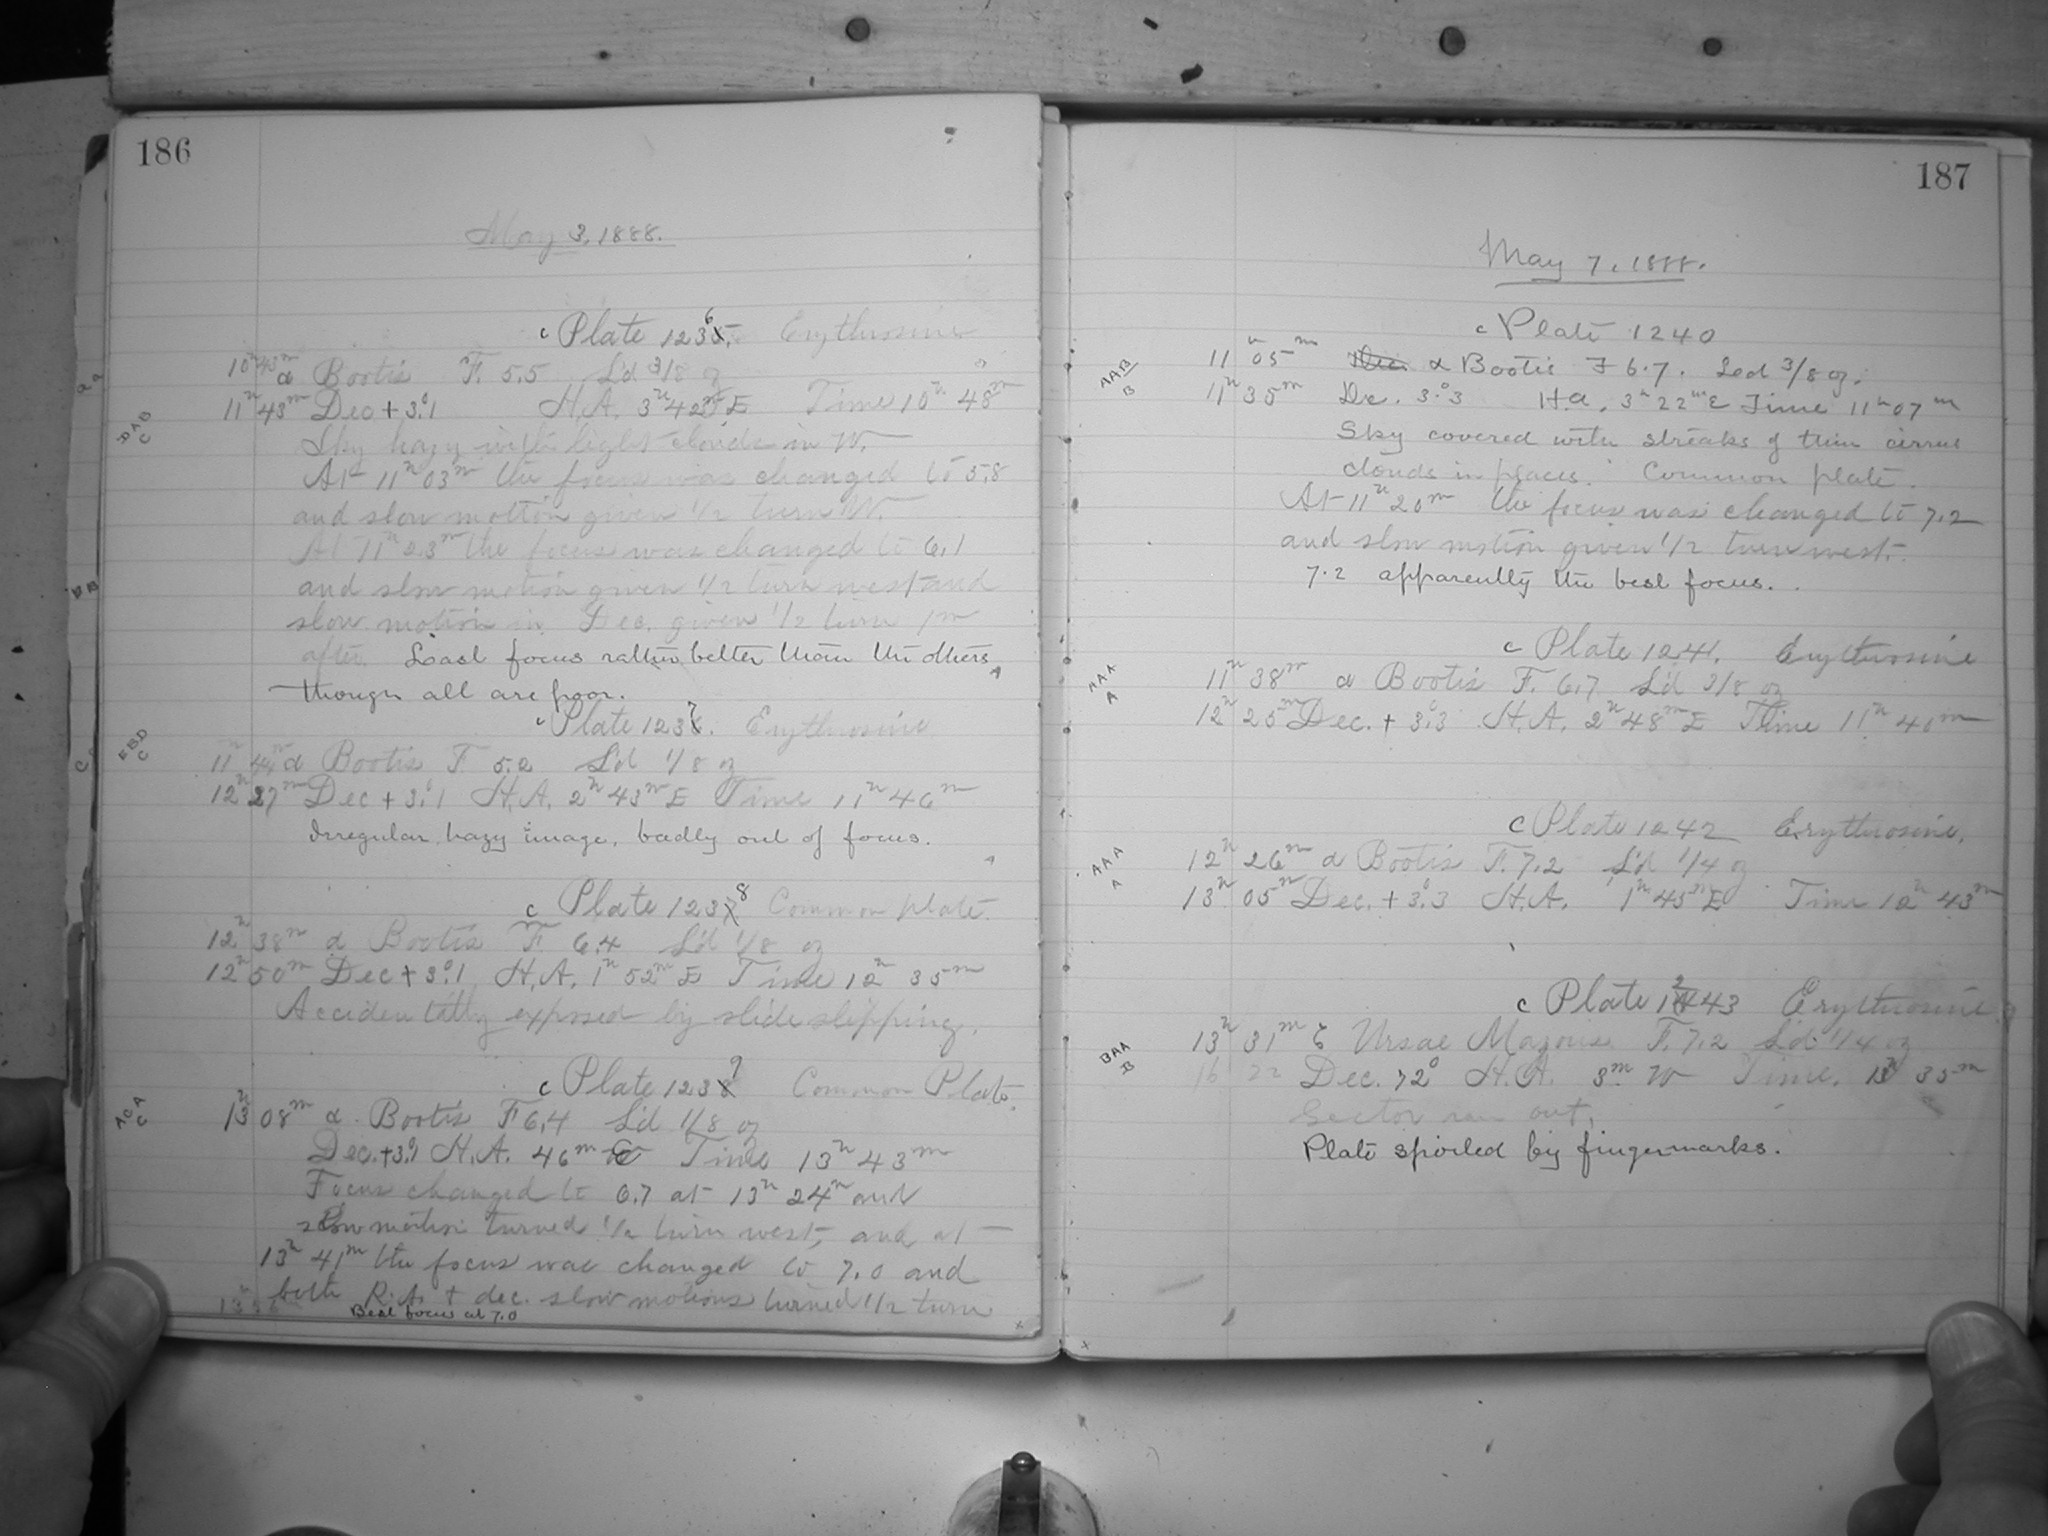 186
May 3, 1888.
c Plate 1236. Erythrosine
10h 43m α Bootis F. 5.5 L'd 3/8 oz
11h 43m Dec + 3.°1 H.A. 3h 42m E Time 10h 48m
DAD
C
Sky hazy with light clouds in W.
At 11h 03m the focus was changed to 5.8
and slow motion given 1/2 turn W.
At 11h 23m the focus was changed to 6.1
and slow motion given 1/2 turn west and
slow motion in Dec. given 1/2 turn 1m
after. Last focus rather better than the others
though all are poor.
c Plate 1237. Erythrosine
EBD
C
11h 44m α Bootis F 5.2 L'd 1/8 oz
12h 27m Dec + 3.°1 H.A. 2h 43m E Time 11h 46m
Irregular, hazy image, badly out of focus.
c Plate 1238 Common plate
12h 38m α Bootis F 6.4 L'd 1/8 oz
12h 50m Dec + 3.°1 H.A. 1h 52m E Time 12h 35m
Accidentally exposed by slide slipping.
c Plate 1239 Common Plate.
ACA
C
13h 08m α Bootis F 6.4 L'd 1/8 oz
Dec. +3.°1 H.A. 46m E Time 13h 43m
Focus changed to 6.7 at 13h 24m and
slow motion turned 1/2 turn west, and at
13h 41m the focus was changed to 7.0 and
both R.A. + dec. slow motions turned 1/2 turn
Best focus at 7.0
187
May 7, 1888.
c Plate 1240
AAB
B
11h 05m α Bootis F 6.7. Led 3/8 oz.
11h 35m Dec. 3.°3 H.a. 3h 22m E Time 11h 07m
Sky covered with streaks of thin cirrus
clouds in places. Common plate.
At 11h 20m the focus was changed to 7.2
and slow motion given 1/2 turn west.
7.2 apparently the best focus.
c Plate 1241. Erythrosine
AAA
A
11h 38m α Bootis F. 6.7 L'd 3/8 oz
12h 25m Dec. + 3.°3 H.A. 2h 48m E Time 11h 41m
c Plate 1242 Erythrosine.
AAA
A
12h 26m α Bootis F. 7.2 L'd 1/4 oz
13h 05m Dec. + 3.°3 H.A. 1h 45m E Time 12h 43m
c Plate 1243 Erythrosine
BAA
B
13h 31m ζ Ursae Majoris F. 7.2 L'd 1/4 oz
16 22 Dec. 72° H.A. 3m W Time. 13h 35m
Sector ran out.
Plate spoiled by fingermarks.